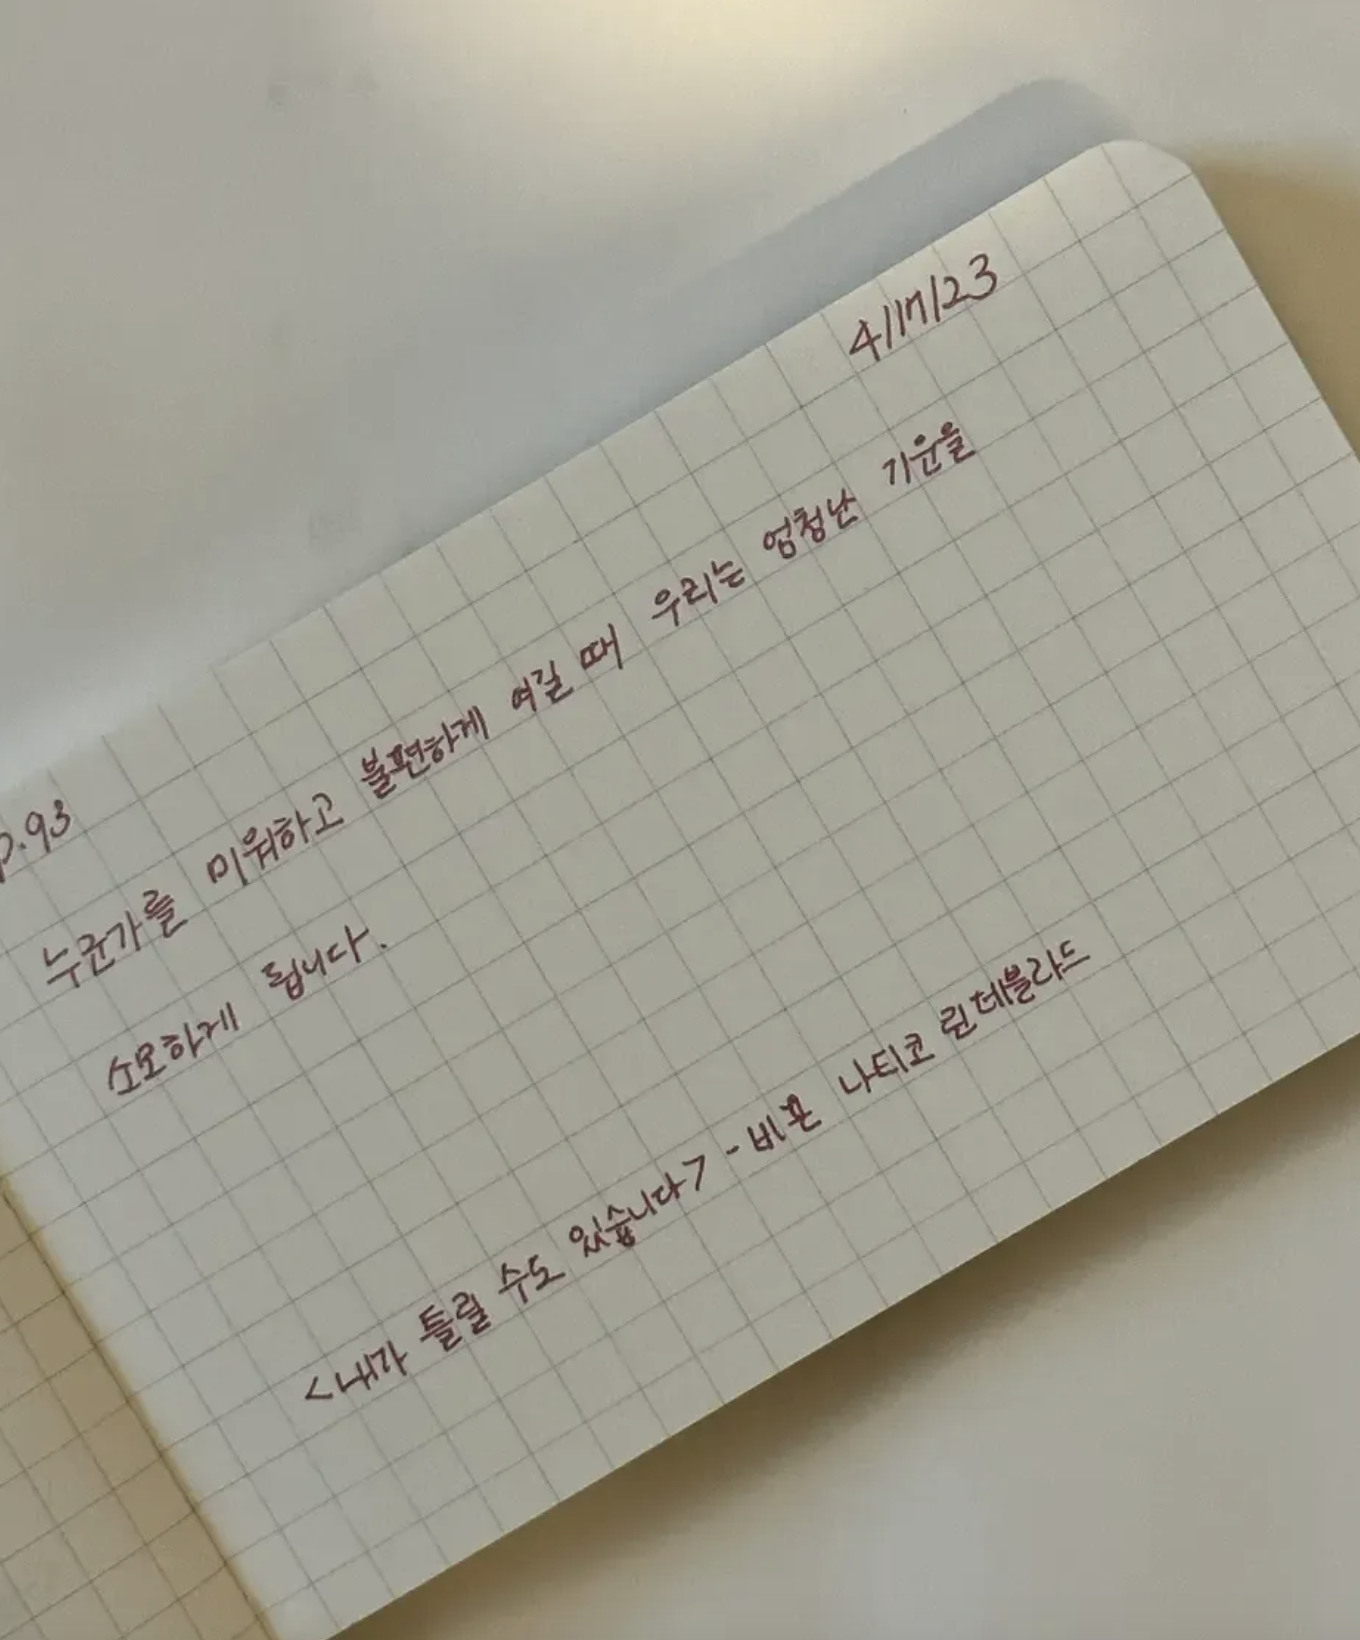 4/17/23
p.93
누군가를 미워하고 불편하게 여길 때 우리는 엄청난 기운을
소모하게 됩니다.
<내가 틀릴 수도 있습니다> - 비욘 나티코 린데블라드